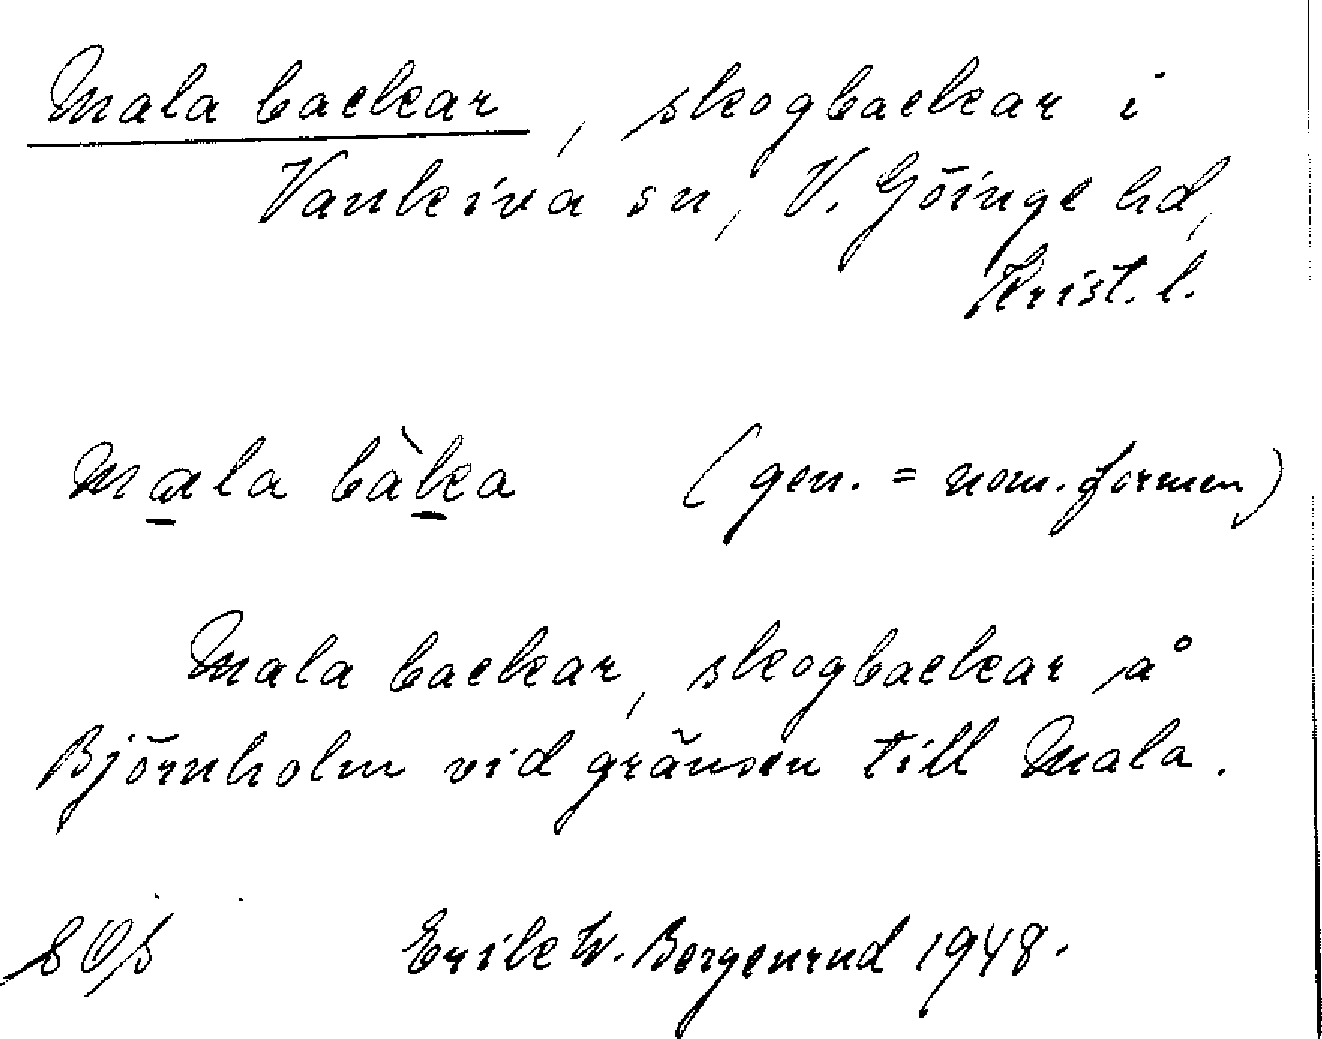 Mala backar, skogbackar i
Vankiva sn, V. Göinge hd,
Krist. l.
mala bàka (gen. = nom. formen)
Mala backar, skogbackar å
Björnholm vid gränsen till Mala.
Erik W. Bergenrud 1948.